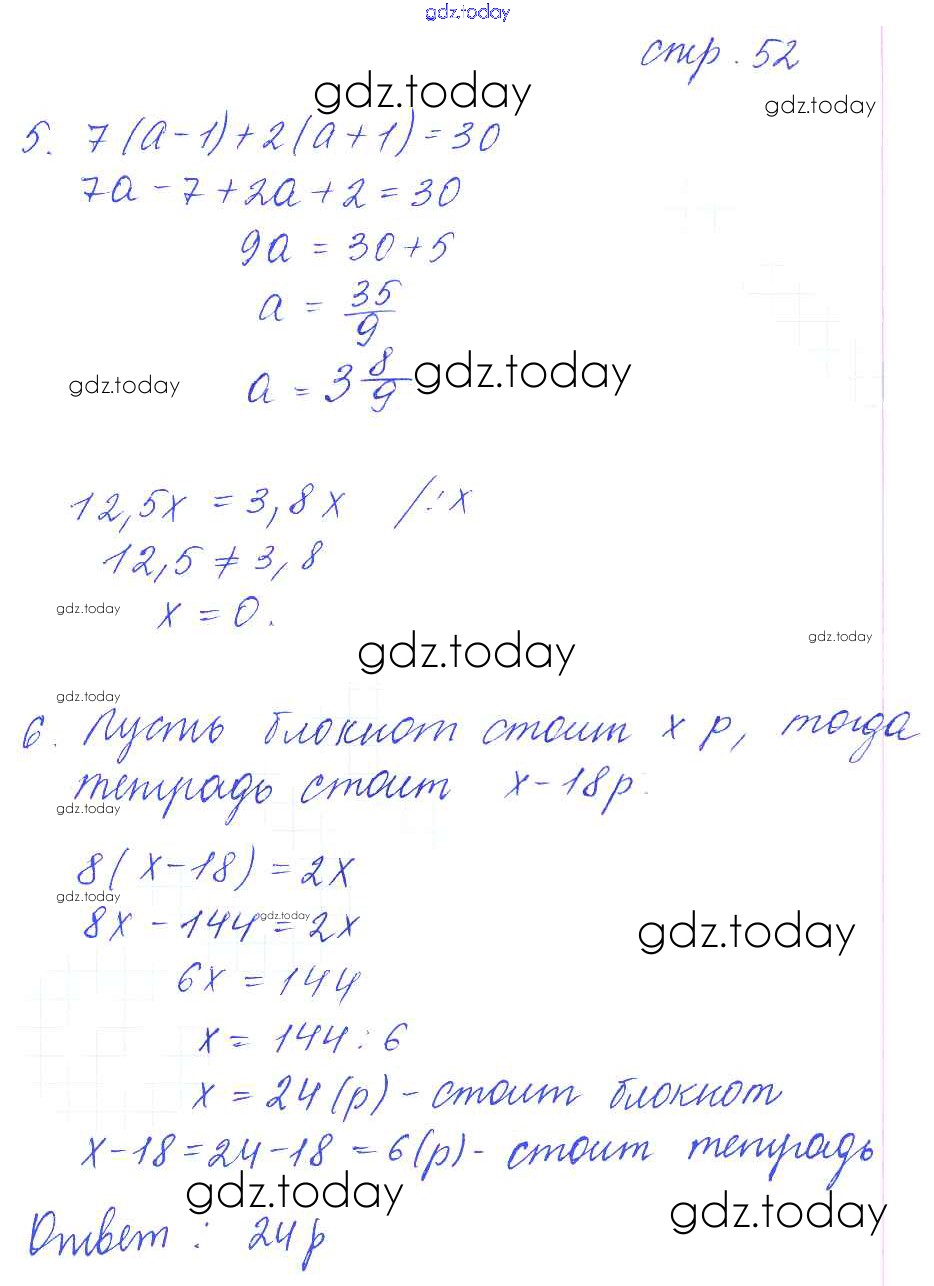 gdz.today
стр. 52
gdz.today
gdz.today
5. 7(a-1)+2(a+1)=30
7a-7+2a+2=30
9a = 30+5
a = 35/9
a = 3 8/9
gdz.today
gdz.today
12,5x = 3,8x /:x
12,5 ≠ 3,8
x = 0.
gdz.today
gdz.today
gdz.today
gdz.today
6. Пусть блокнот стоит x р, тогда
тетрадь стоит x-18р.
gdz.today
8(x-18)=2x
gdz.today
8x-144=2x
gdz.today
gdz.today
6x = 144
x = 144:6
x = 24(р)-стоит блокнот
x-18=24-18=6(р)-стоит тетрадь
gdz.today
gdz.today
Ответ: 24р